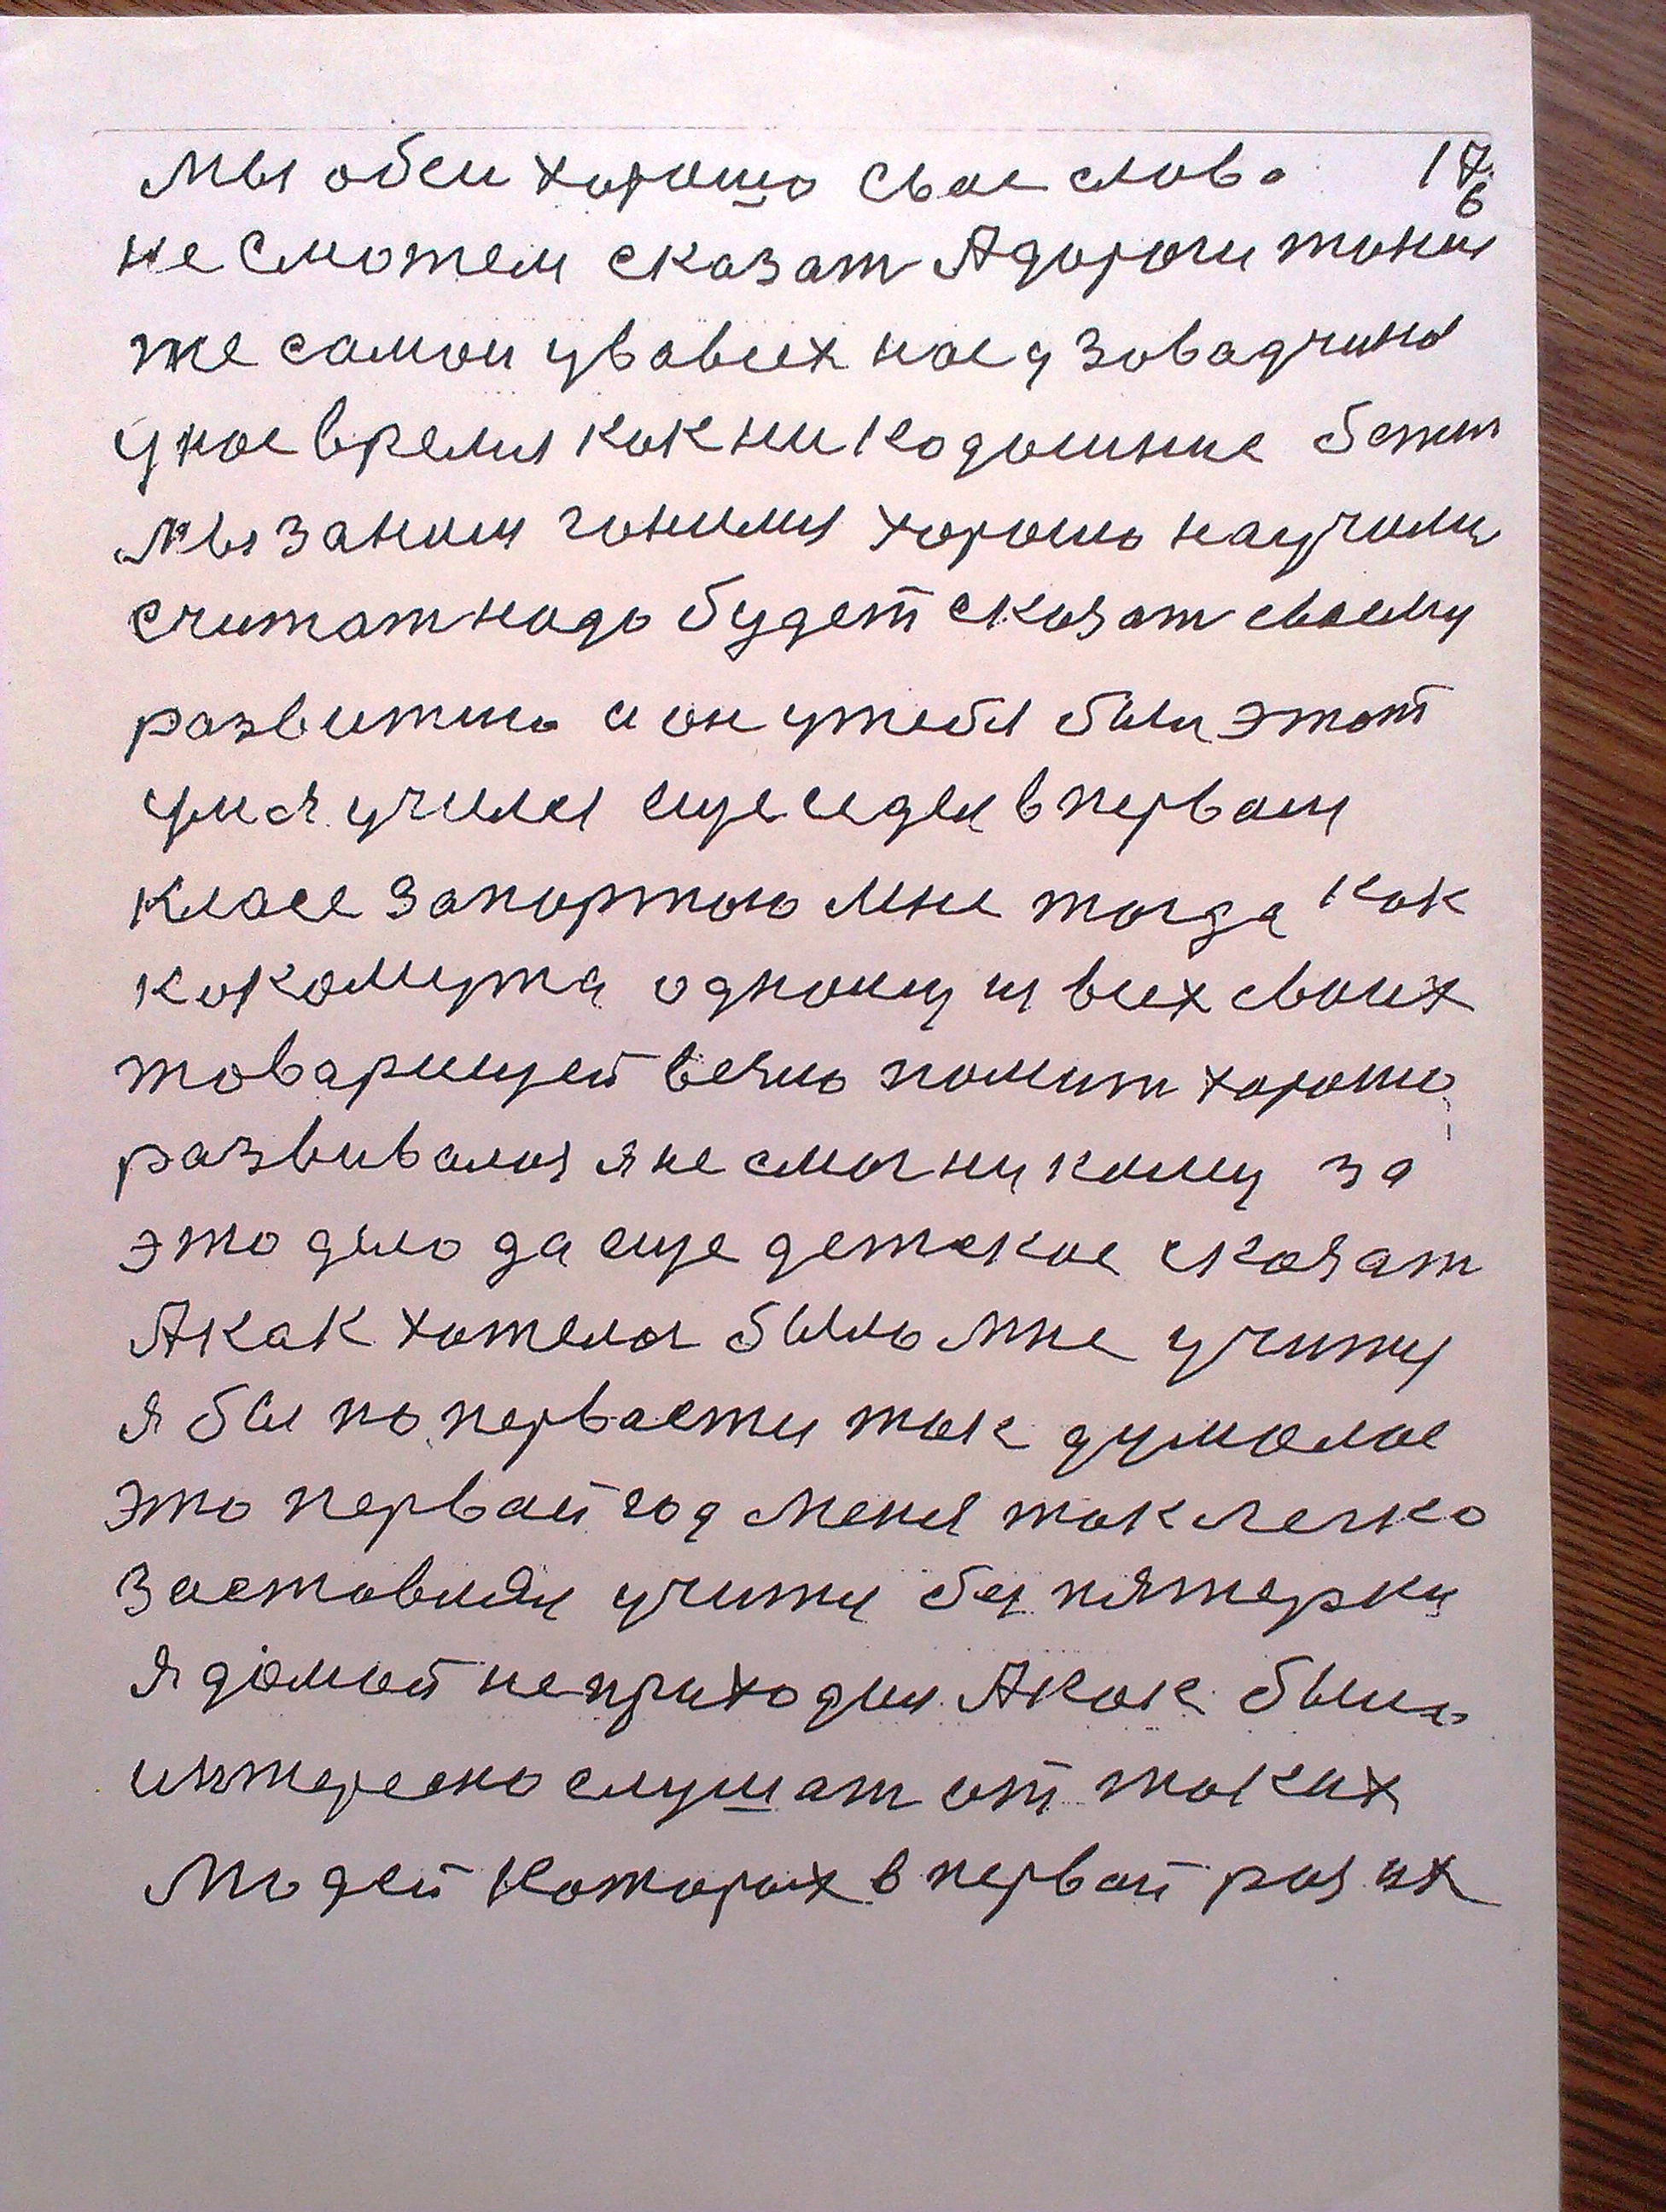 мы обеи хорошо свае слово 17.
6
не сможем сказат А дороги
же самои у всех нас
у нас время как ни бежит
мы за ним хорошо научим
считат надо будет сказат своему
развитию и он у тебя был этот
ум я учился еще сидел в первом
класе за партою мне тогда как
какомута одному из всех своих
товарищей веяло хорошо
развивался я не смог ни кому за
это дело да еще детское сказат
А как хотелос было мне
я был по первости так думалос
это первай год меня так легко
заставили без пятерки
я домой не приходил А как было
интересно слушат от таких
людей которых в первай раз их